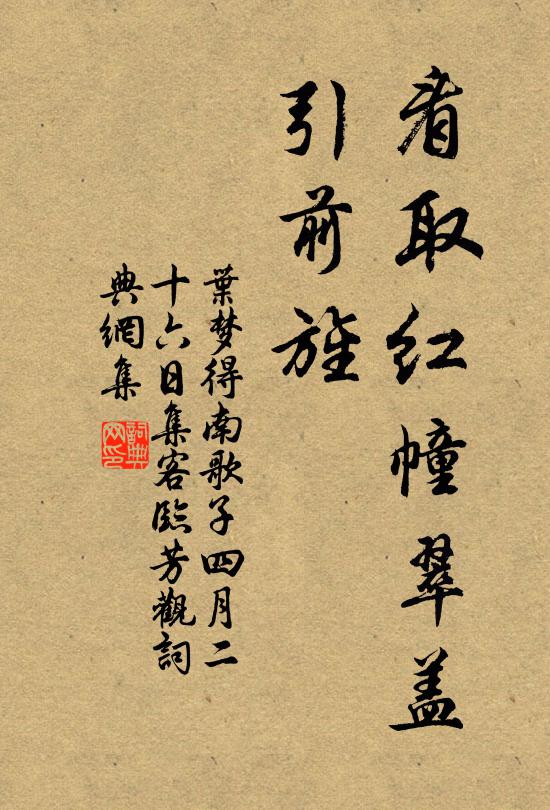 看取红幢翠盖
引前旌
葉梦得南歌子四月二
十六日集客臨芳觀詞
典網集
詞典
网印